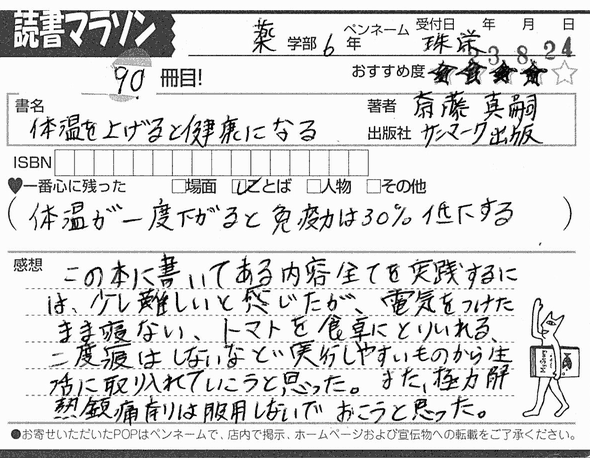 読書マラソン
薬 学部 6 年 ペンネーム 珠栄 受付日 年 月 日
3.8.24
90 冊目! おすすめ度 ★★★★☆
書名 体温を上げると健康になる
著者 斎藤真嗣
出版社 サンマーク出版
ISBN
♥一番心に残った □場面 ☑ことば □人物 □その他
(体温が一度下がると免疫力は30%低下する)
感想 この本に書いてある内容全てを実践するに
は、少し難しいと感じたが、電気をつけた
まま寝ない、トマトを食卓にとりいれる、
二度寝はしないなど実行しやすいものから生
活に取り入れていこうと思った。また、極力解
熱鎮痛剤は服用しないでおこうと思った。
●お寄せいただいたPOPはペンネームで、店内で掲示、ホームページおよび宣伝物への転載をご了承ください。